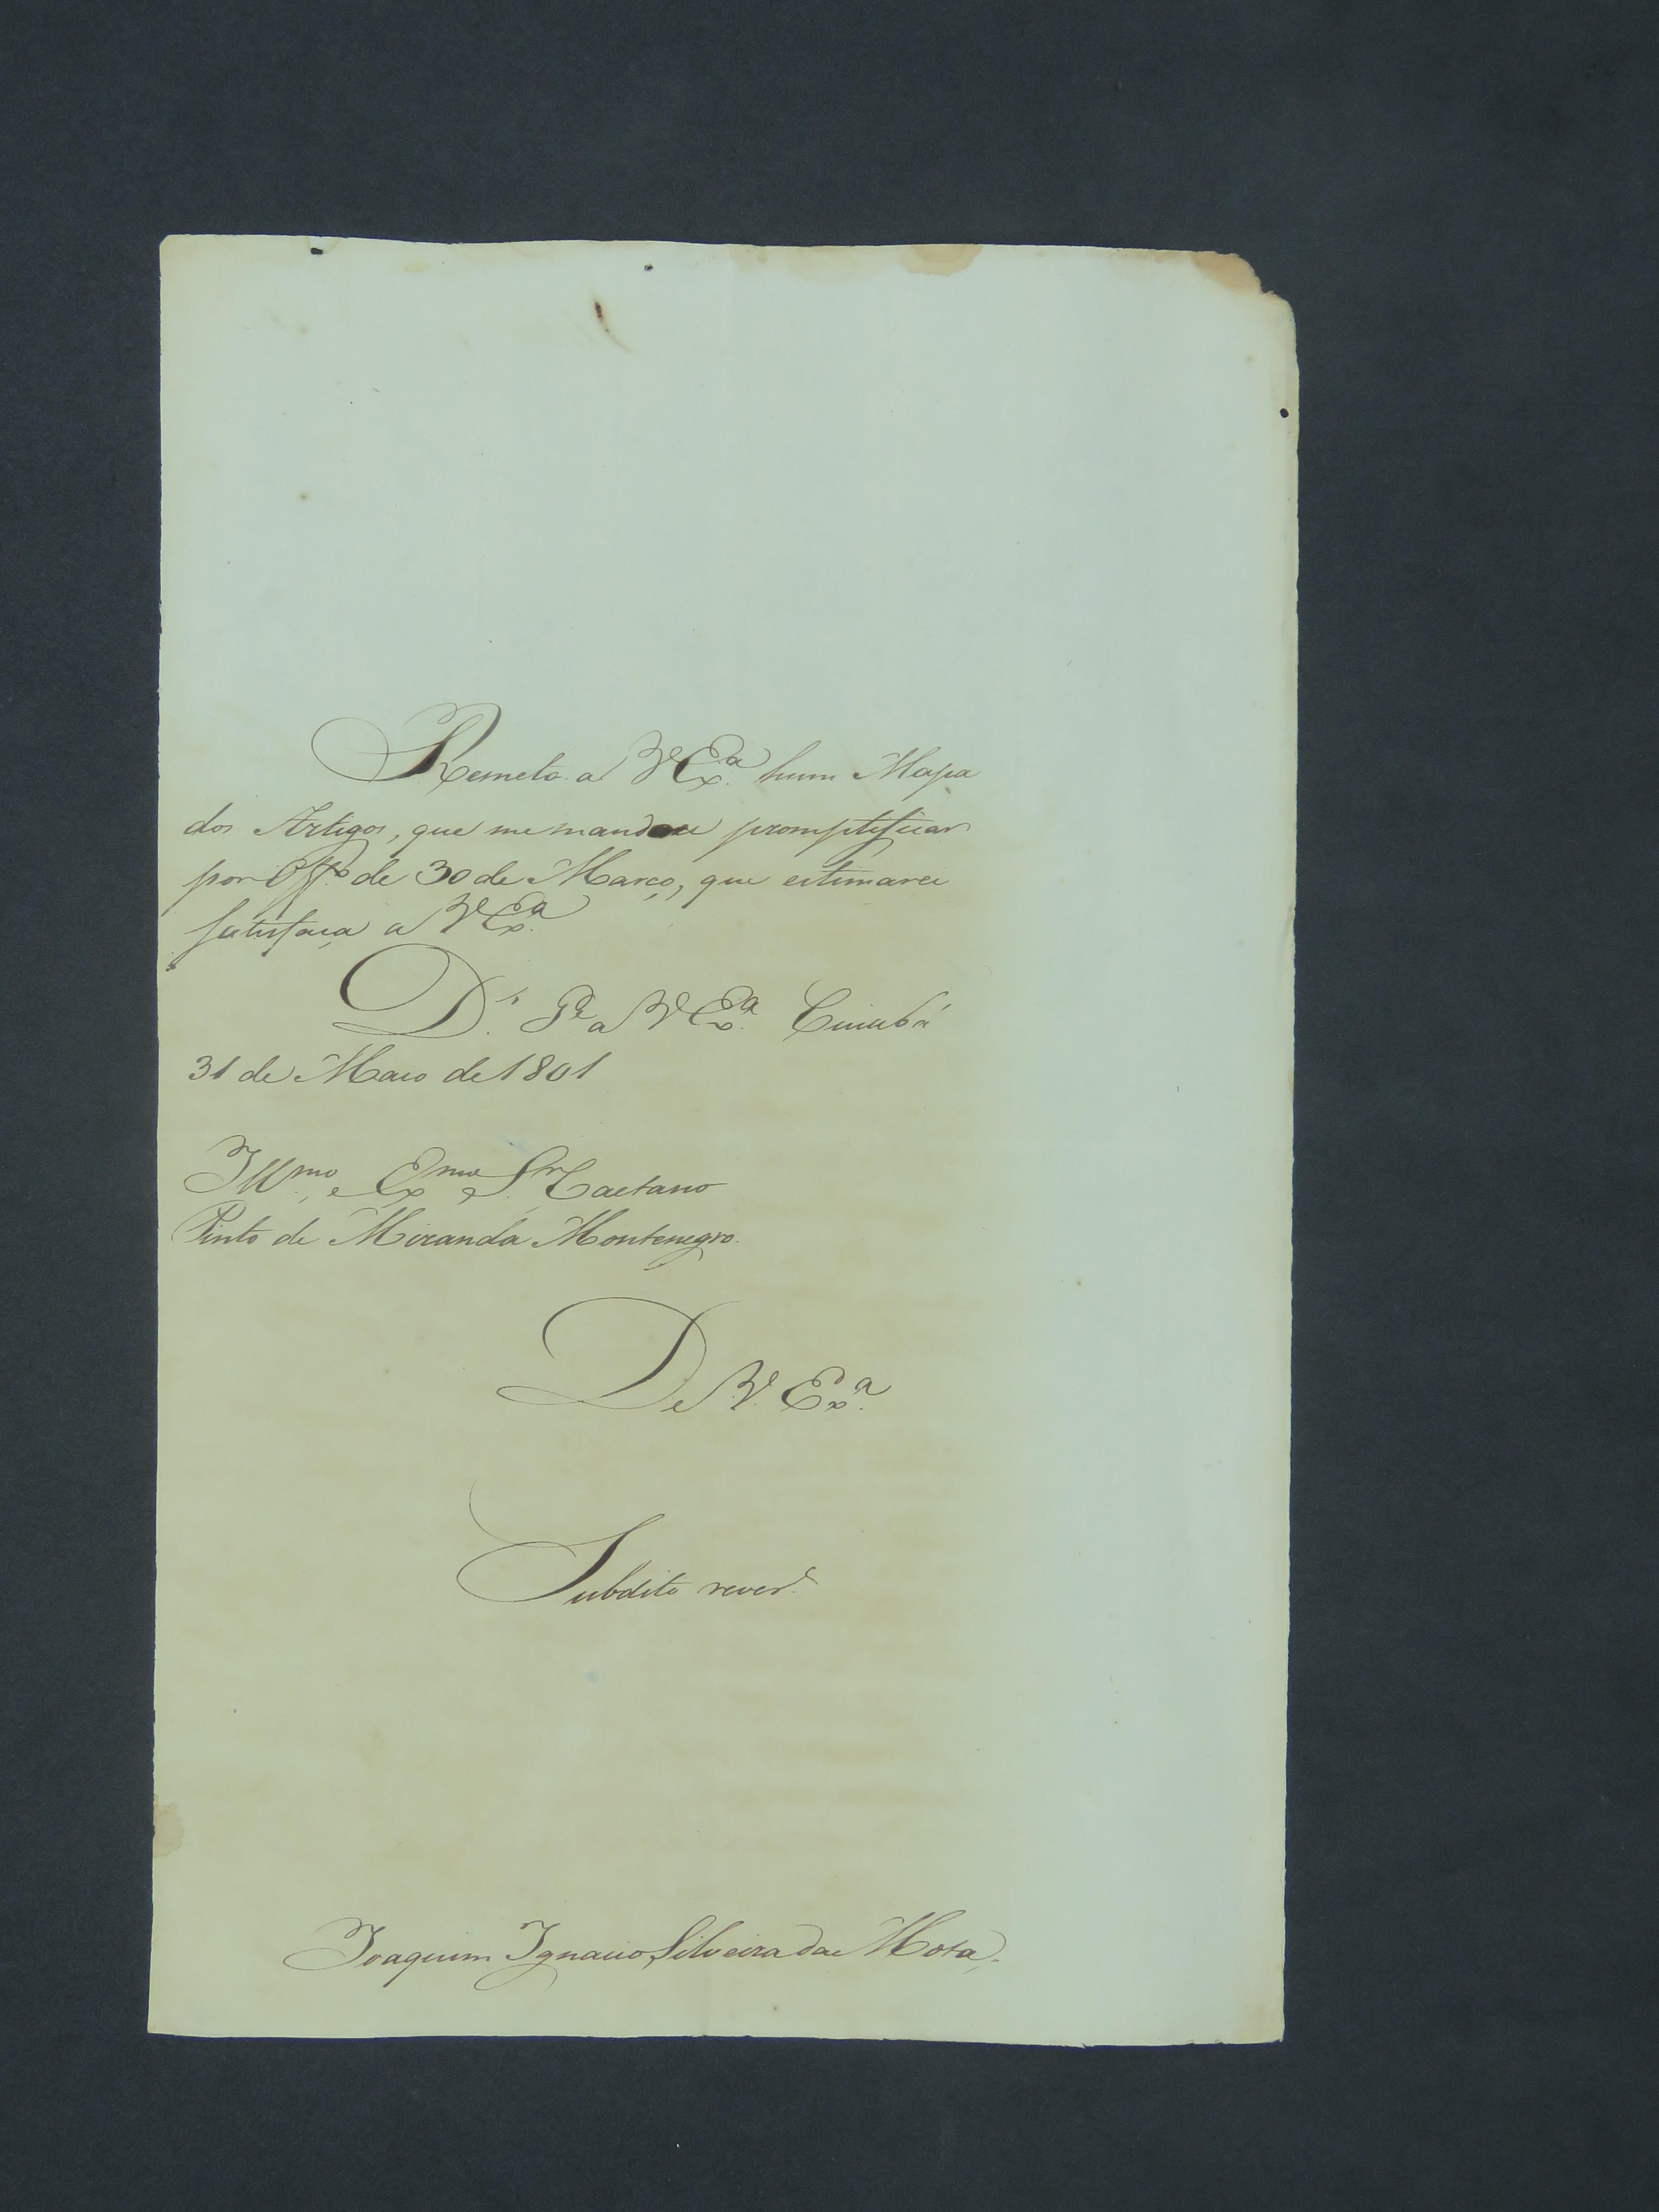 Remeto a V Exª. hum Mapa
dos Artigos, que me mandou promptificar
por Offº. de 30 de Março, que estimarei
satisfaça a V Exª.
D.s Gde a V Exª. Cuiabá
31 de Maio de 1801
Illmo., e Exmo. Sr. Caetano
Pinto de Miranda Montenegro.
De V. Exª.
Subdito rever.e
Joaquim Ignacio Silveira da Mota.